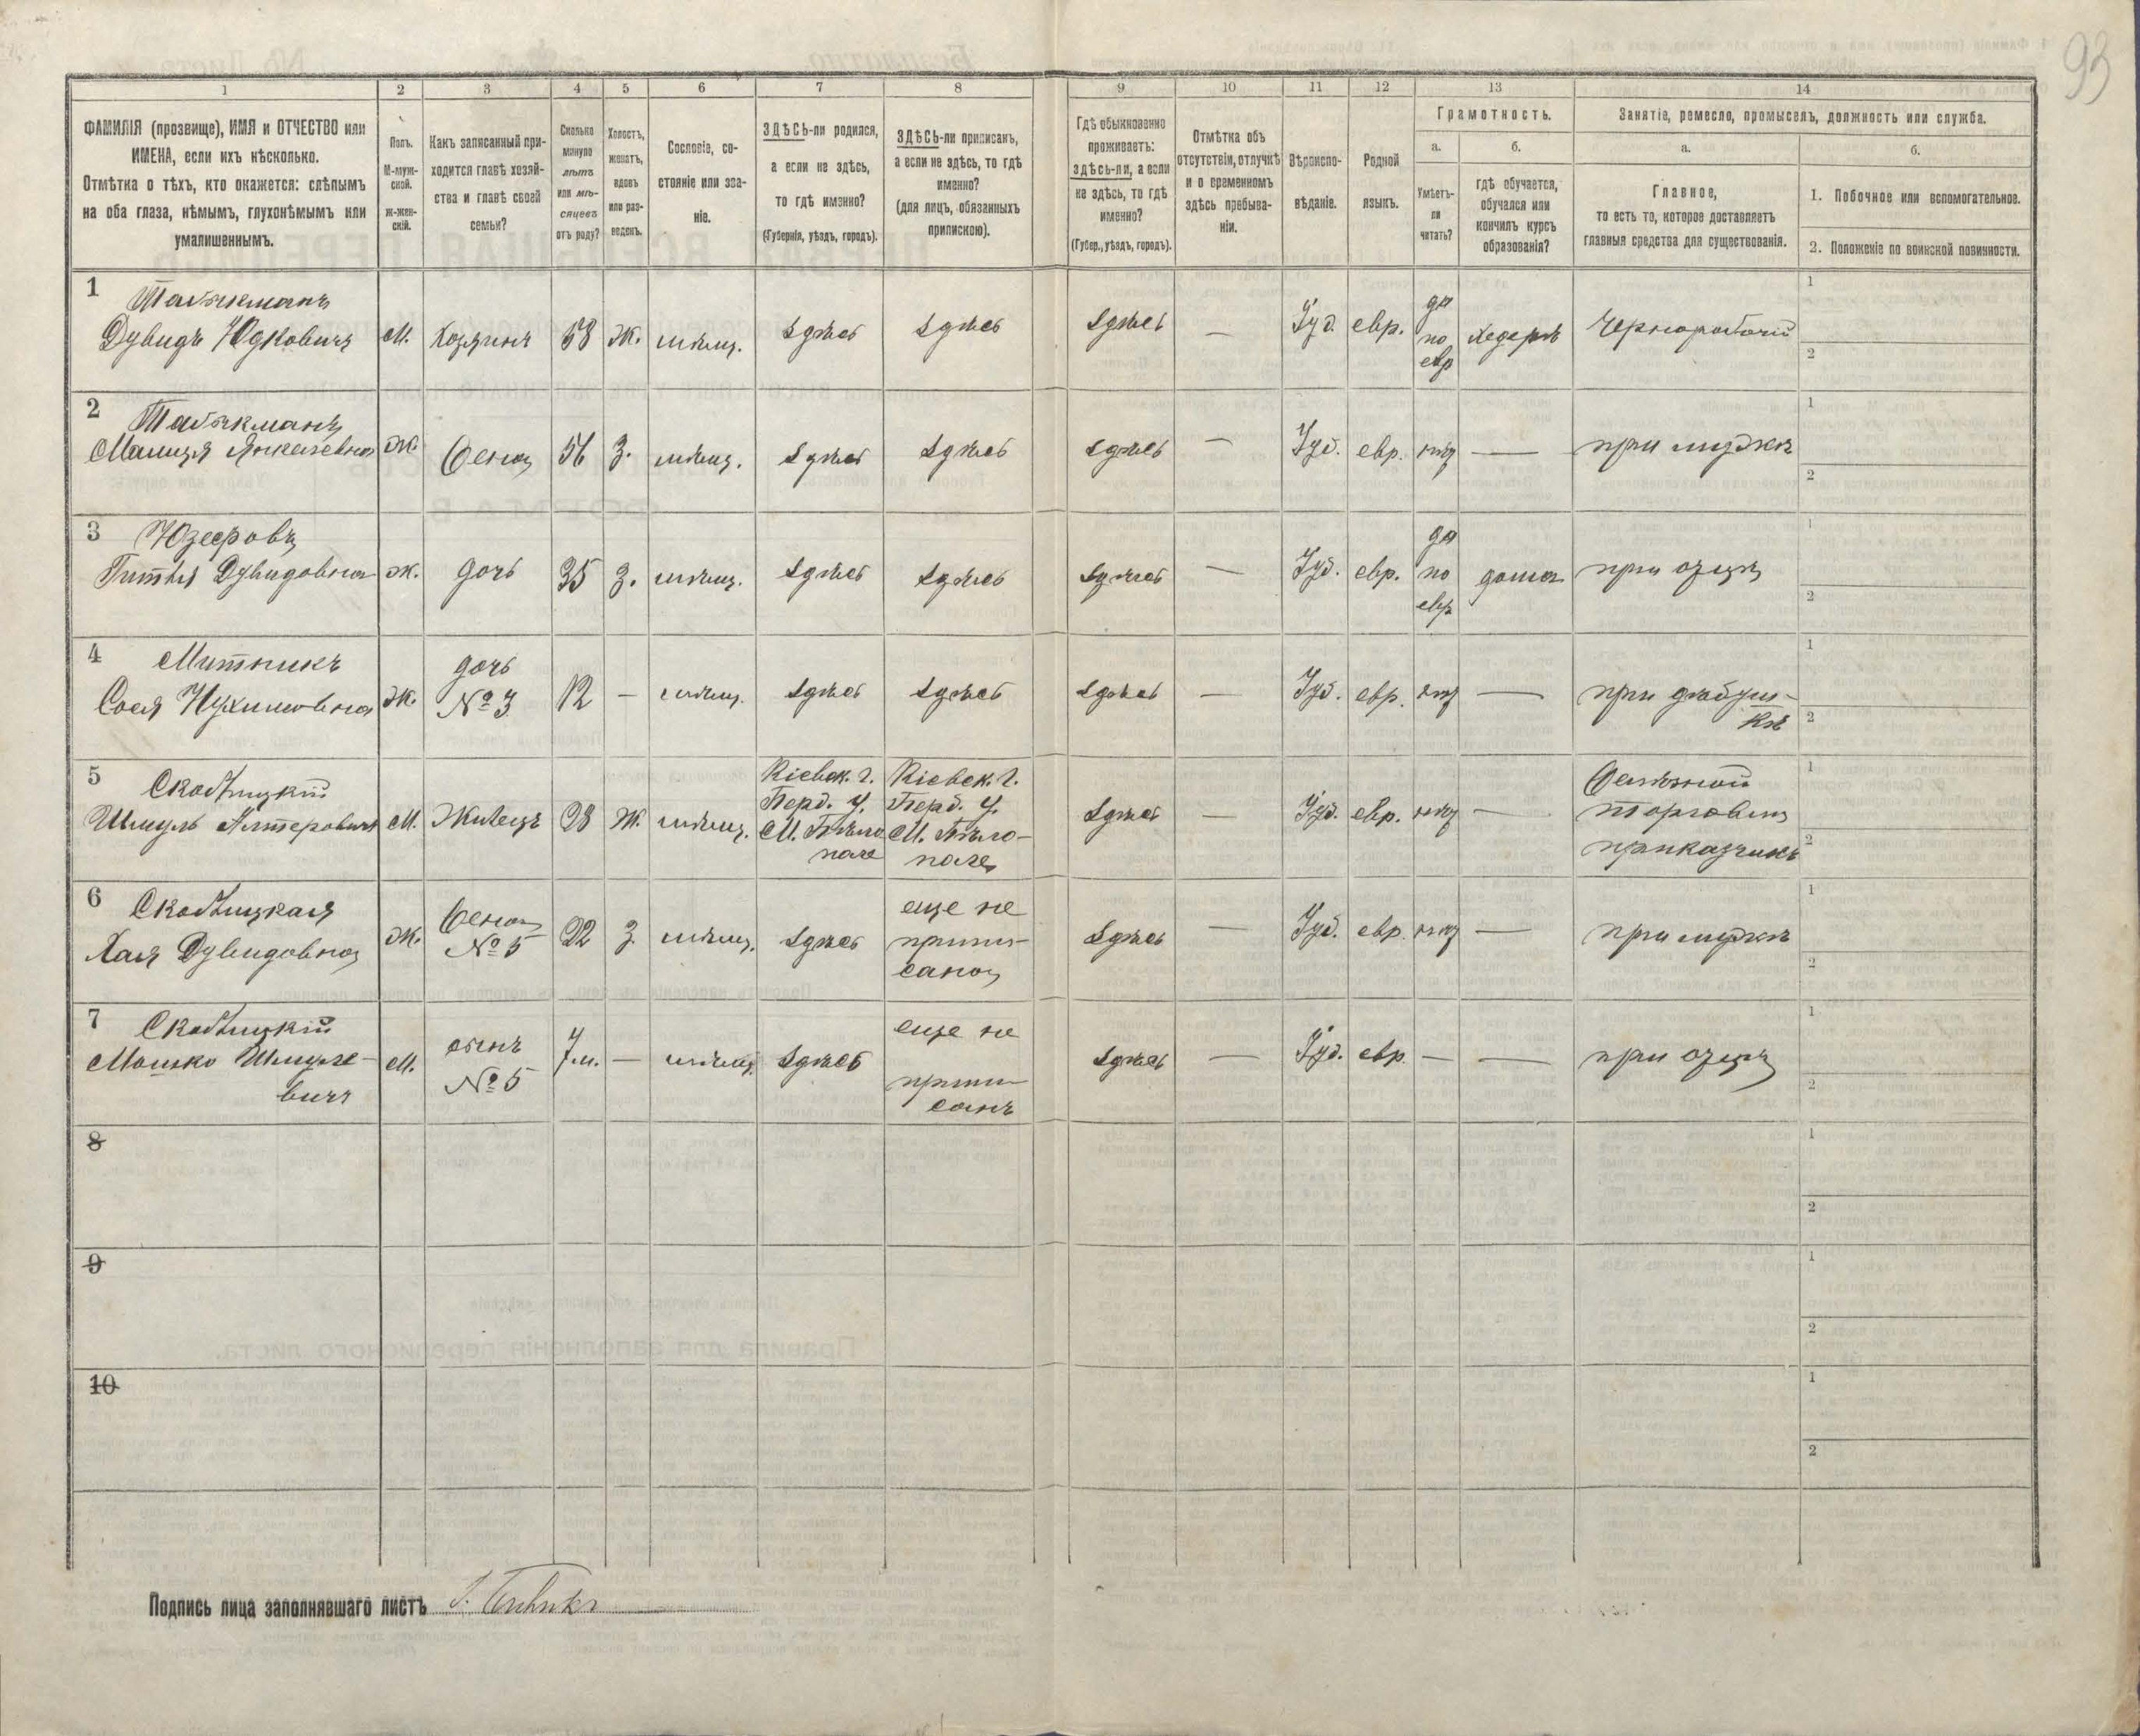 93
1 2 3 4 5 6 7 8 9 10 11 12 13 14
ФАМИЛІЯ (прозвище), ИМЯ и ОТЧЕСТВО или
ИМЕНА, если ихъ нѣсколько.
Отмѣтка о тѣхъ, кто окажется: слѣпымъ
на оба глаза, нѣмымъ, глухонѣмымъ или
умалишеннымъ.
Полъ.
М-муж-
ской.
Ж-жен-
скій.
Какъ записанный при-
ходится главѣ хозяй-
ства и главѣ своей
семьи?
Сколько
минуло
лѣтъ
или мѣ-
сяцевъ
отъ роду?
Холостъ,
женатъ,
вдовъ
или раз-
веденъ.
Сословіе, со-
стояніе или зва-
ніе.
ЗДѢСЬ-ли родился,
а если не здѣсь,
то гдѣ именно?
(Губернія, уѣздъ, городъ).
ЗДѢСЬ-ли приписанъ,
а если не здѣсь, то гдѣ
именно?
(для лицъ, обязанныхъ
припискою).
Гдѣ обыкновенно
проживаетъ:
здѣсь-ли, а если
не здѣсь, то гдѣ
именно?
(Губер., уѣздъ, городъ).
Отмѣтка объ
отсутствіи, отлучкѣ
и о временномъ
здѣсь пребыва-
ніи.
Вѣроиспо-
вѣданіе.
Родной
языкъ.
Грамотность.
а.
Умѣетъ-
ли
читать?
б.
гдѣ обучается,
обучался или
кончилъ курсъ
образованія?
Занятіе, ремесло, промыселъ, должность или служба.
а.
Главное,
то есть то, которое доставляетъ
главныя средства для существованія.
б.
1. Побочное или вспомогательное.
2. Положеніе по воинской повинности.
1
Дувидъ Юдковичъ М. Хозяинъ 58 Ж. мѣщ. здѣсь здѣсь здѣсь — Іуд. евр. да по евр хедеръ Чернорабочій
1
2
2
Малця Янкелевна Ж жена 56 З. мѣщ. здѣсь здѣсь здѣсь — Іуд. евр. нѣт — при мужѣ
1
2
3
Дувидовна ж. дочь 35 З. мѣщ. здѣсь здѣсь здѣсь — Іуд. евр. да по евр дома при отцѣ
1
2
4 Митникъ
Сося Нухимовна Ж. дочь № 3 12 — мѣщ. здѣсь здѣсь здѣсь — Іуд. евр. нѣт — при дѣдуш-
кѣ
1
2
5
Шмуль Алтеровичъ М. Жилецъ 28 Ж. мѣщ.
Кіевск. г.
Берд. у.
М. Бѣло
поле
Кіевск. г.
Берд. у.
М. Бѣло-
поле
здѣсь — Іуд. евр. нѣт —
торговли
приказчикъ
1
2
6
Хая Дувидовна Ж. жена № 5 22 З. мѣщ. здѣсь
еще не
припи-
сана
здѣсь — Іуд. евр. нѣт — при мужѣ
1
2
7
Мошко Шмуле-
вичъ М. сынъ № 5 7 м. — мѣщ. здѣсь
еще не
припи-
санъ
здѣсь — Іуд. евр. — — при отцѣ
1
2
8
1
2
9
1
2
10
1
2
Подпись лица заполнявшаго листъ